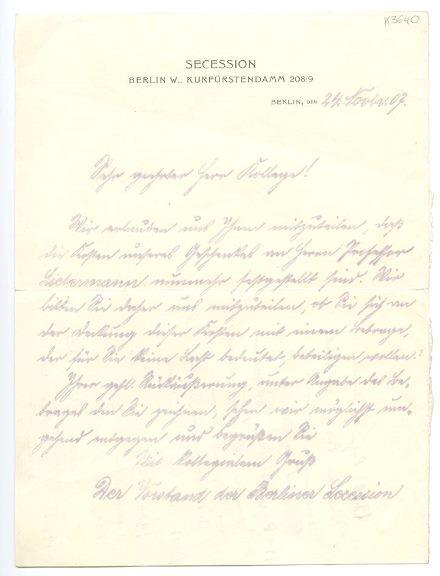 K3640
SECESSION
BERLIN W., KURFÜRSTENDAMM 208/9
BERLIN, DEN 24. Novbr. 07.
Sehr geehrter Herr Kollege!
Wir erlauben uns Ihnen mitzuteilen, daß
die Kosten unseres Geschenkes an Herrn Professor
Liebermann nunmehr festgestellt sind. Wir
bitten Sie daher uns mitzuteilen, ob Sie sich an
der Deckung dieser Kosten mit einem Betrage,
der für Sie keine Last bedeutet, beteiligen wollen.
Ihrer gefl. Rückäußerung, unter Angabe des Be-
trages den Sie zeichnen, sehen wir möglichst um-
gehend entgegen und begrüßen Sie
Mit kollegialem Gruß
Der Vorstand der Berliner Secession